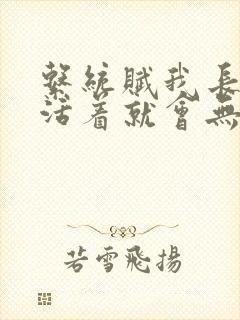 繫統賦我長
活着就會無
若雪飛揚